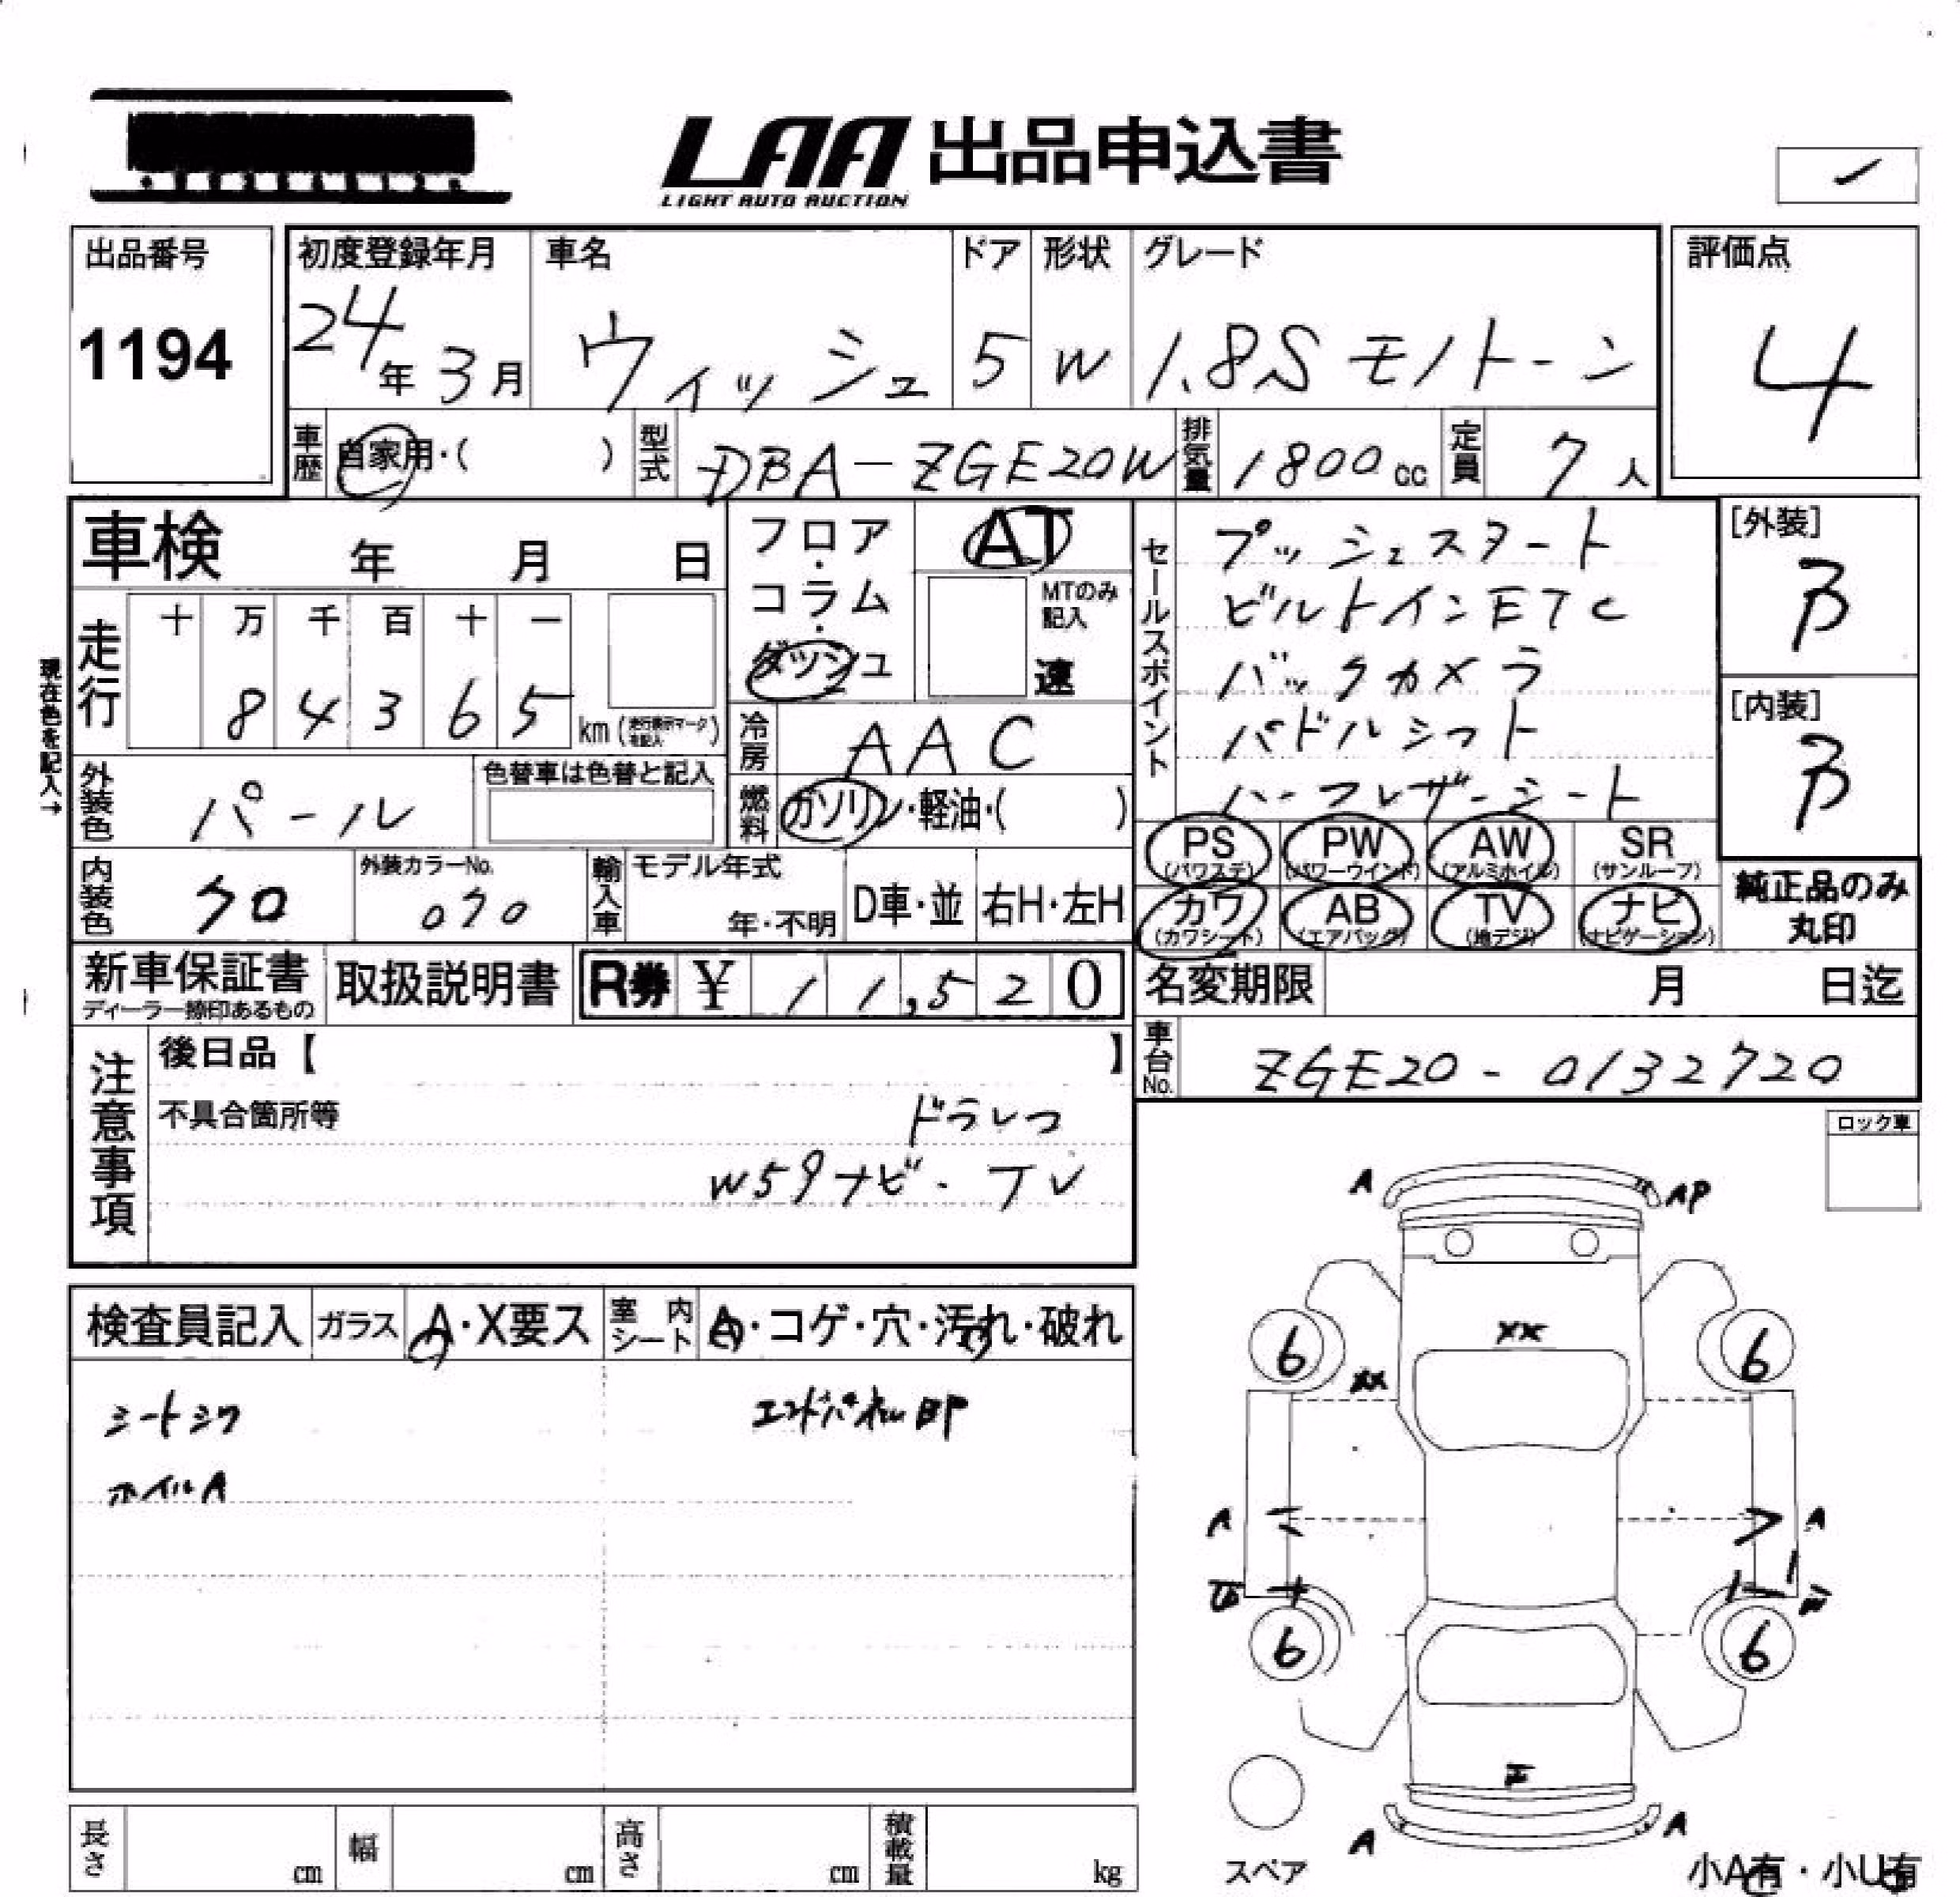 LAA 出品申込書
LIGHT AUTO AUCTION
出品番号
1194
初度登録年月
24年3月
車名
ウィッシュ
ドア
5
形状
W
グレード
1.8S モノトーン
評価点
4
車歴
自家用・( )
型式
DBA-ZGE20W
排気量
1800cc
定員
7人
車検 年 月 日
フロア・コラム・ダッシュ
AT
MTのみ記入
速
セールスポイント
プッシュスタート
ビルトインETC
バックカメラ
パドルシフト
ハーフレザーシート
[外装]
B
[内装]
B
現在色を記入→
走行
十 万 千 百 十 一
8 4 3 6 5
km(走行表示マークを記入)
冷房
AAC
外装色
パール
色替車は色替と記入
燃料
ガソリン・軽油・( )
内装色
クロ
外装カラーNo.
070
輸入車
モデル年式
年・不明
D車・並
右H・左H
PS (パワステ)
PW (パワーウインド)
AW (アルミホイル)
SR (サンルーフ)
カワ (カワシート)
AB (エアバッグ)
TV (地デジ)
ナビ (ナビゲーション)
純正品のみ
丸印
新車保証書
ディーラー捺印あるもの
取扱説明書
R券 ¥ 11,520
名変期限 月 日迄
車台No.
ZGE20-0132720
注意事項
後日品【 】
不具合箇所等
ドラレコ
W59ナビ・TV
ロック車
検査員記入
ガラス
A・X要ス
室内シート
A・コゲ・穴・汚れ・破れ
シートシワ
エンドパネル凹P
ホイルA
A
AP
XX
XX
6
6
A
A
6
6
A
A
スペア
長さ cm
幅 cm
高さ cm
積載量 kg
小A有・小U有